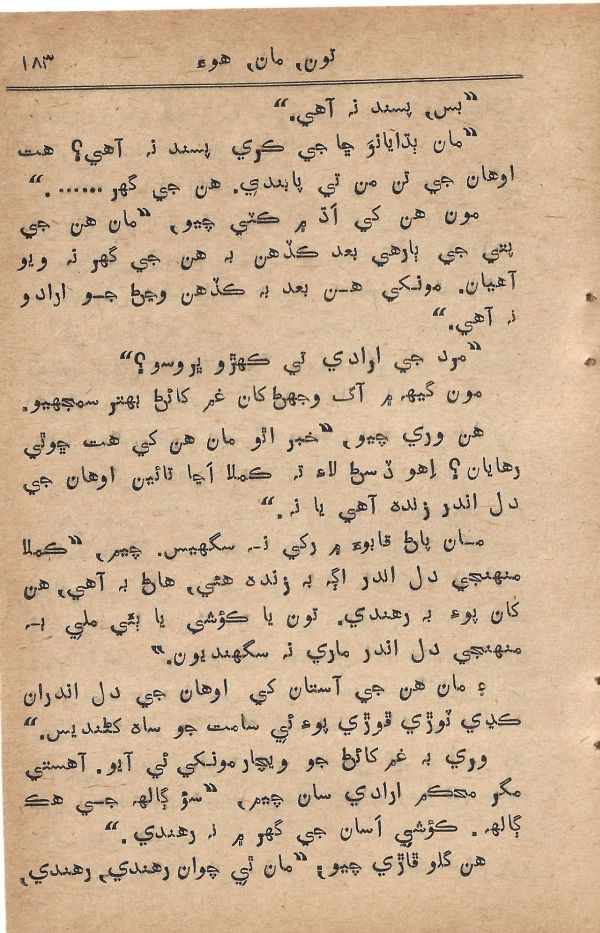 تون، مان، هوءَ ۱۸۳
”بس، پسند نہ آهي.“
”مان ٻڌايانوَ ڇا جي ڪري پسند نہ آهي؟ هت
اوهان جي تن من تي پابندي. هن جي گهر.......“
مون هن کي اَڌ ۾ ڪٽي چيو، ”مان هن جي
پٽي جي ٻارهي بعد ڪڏهن بہ هن جي گهر نہ ويو
آهيان. مونکي هن بعد بہ ڪڏهن وڃڻ جو ارادو
نہ آهي.“
”مرد جي ارادي تي ڪهڙو ڀروسو؟“
مون گيهہ ۾ آگ وجهڻ کان غم کائڻ بهتر سمجهيو.
هن وري چيو، ”خبر اٿو مان هن کي هت ڇوٿي
رهايان؟ اِهو ڏسڻ لاءِ تہ ڪملا اَڃا تائين اوهان جي
دل اندر زنده آهي يا نہ.“
مان پاڻ قابوءَ ۾ رکي نہ سگهيس. چيم، ”ڪملا
منهنجي دل اندر اڳہ بہ زنده هئي، هاڻ بہ آهي، هن
کان پوءِ بہ رهندي. تون يا ڪؤشي يا ٻئي ملي بہ
منهنجي دل اندر ماري نہ سگهنديون.“
۽ مان هن جي آستان کي اوهان جي دل اندران
ڪڍي ٽوڙي ڦوڙي پوءِ ئي سامت جو ساھ کڻنديس.“
وري بہ غم کائڻ جو ويچار مونکي ئي آيو. آهستي
مگر محڪم ارادي سان چيم، ”سؤ ڳالهہ جي هڪ
ڳالهہ. ڪؤشي اَسان جي گهر ۾ نہ رهندي.“
هن گلو ڦاڙي چيو، ”مان ٿي چوان رهندي، رهندي،